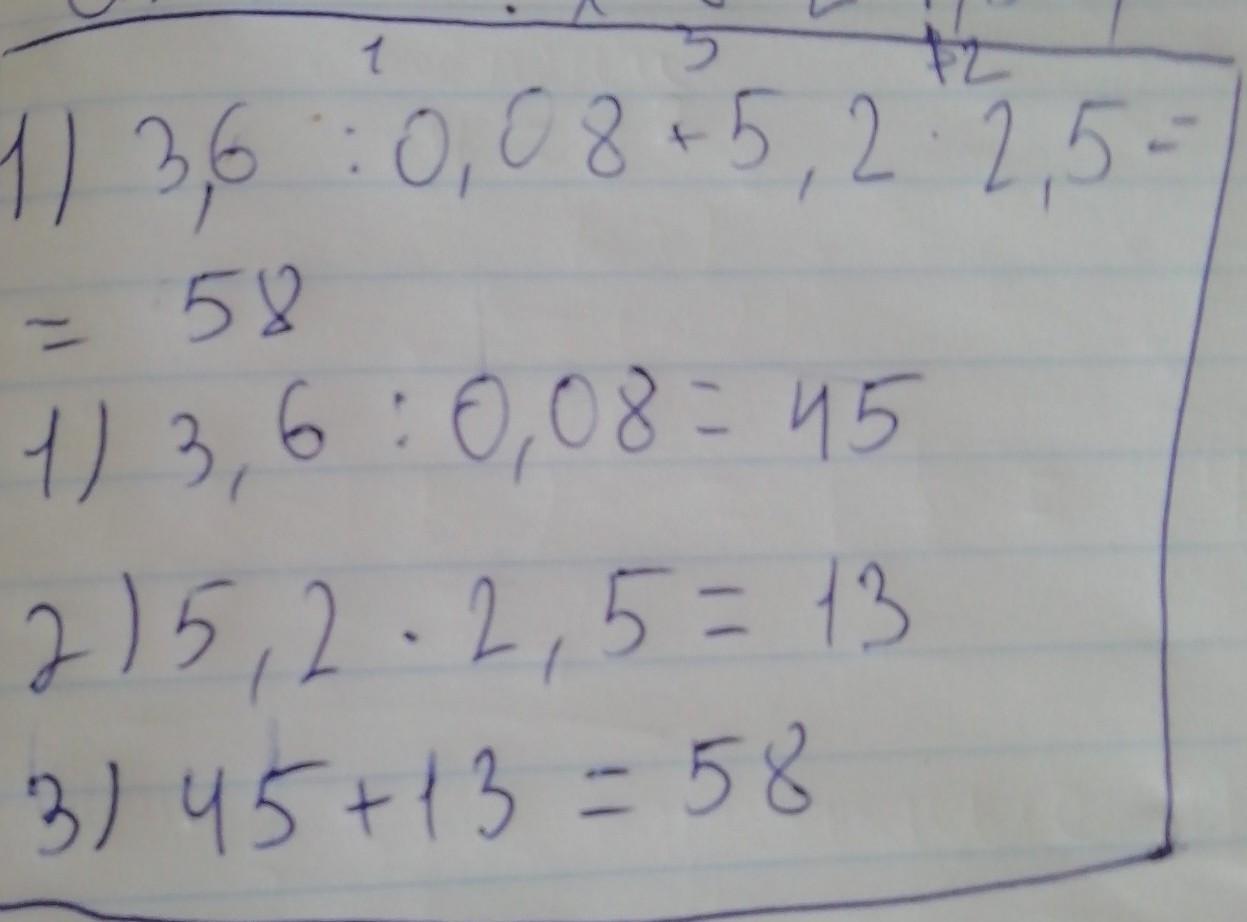 1 3 2
1) 3,6 : 0,08 + 5,2 · 2,5 =
= 58
1) 3,6 : 0,08 = 45
2) 5,2 · 2,5 = 13
3) 45 + 13 = 58